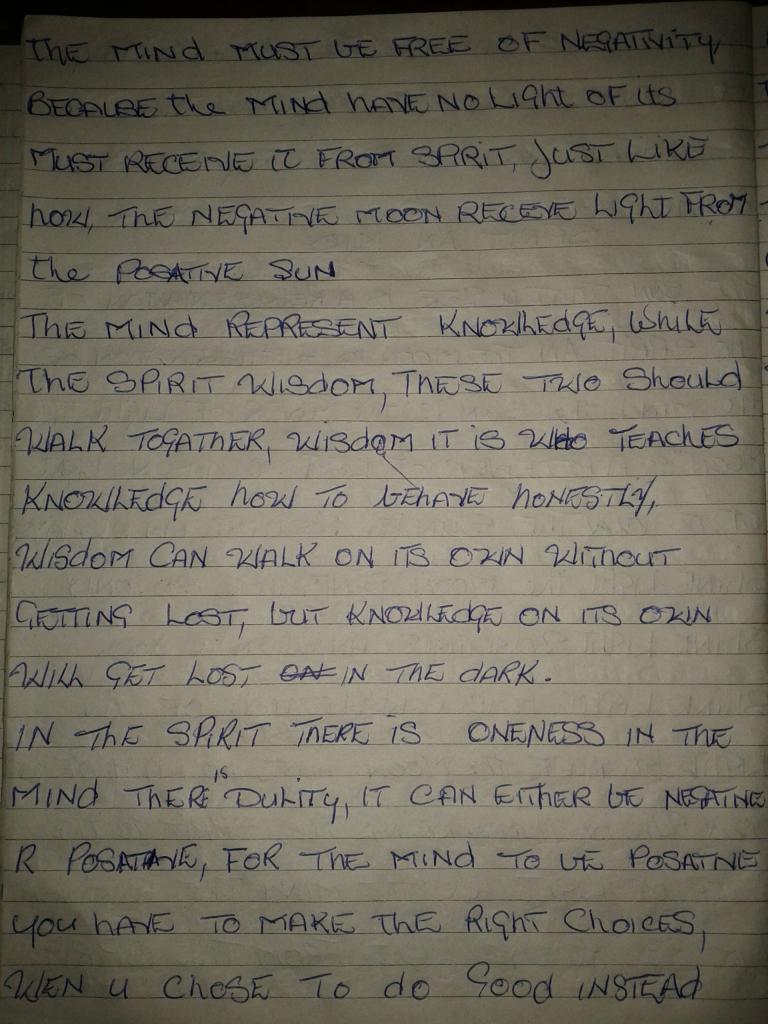 THE MINd MUST bE FREE OF NEGATIVITY
BECAUSE the MINd hAVE NO LIGht OF ITS
MUST RECEIVE IT FROM SPIRIT, JUST LIKE
hOW, THE NEGATIVE MOON RECEVE LIGhT FROM
the POSATIVE SUN
THE MINd REPRESENT KNOWLEdGE, WhILE
THE SPIRIT WISdOM, THESE TWO ShOULd
WALK TOGATHER, WISdOM IT IS WHO TEACHES
KNOWLEdGE hOW TO bEhAVE hONESTLY,
WISdOM CAN WALK ON ITS OWN WIThOUT
GETTING LOST, bUT KNOWLEdGE ON ITS OWN
WILL GET LOST IN THE dARK.
IN ThE SPIRIT ThERE IS ONENESS IN THE
MINd ThERE IS DULITY, IT CAN EIThER bE NEGATIVE
R POSATIVE, FOR THE MINd TO bE POSATIVE
YOU hAVE TO MAKE ThE RIGhT ChOICES,
WEN U ChOSE TO do Good INSTEAd